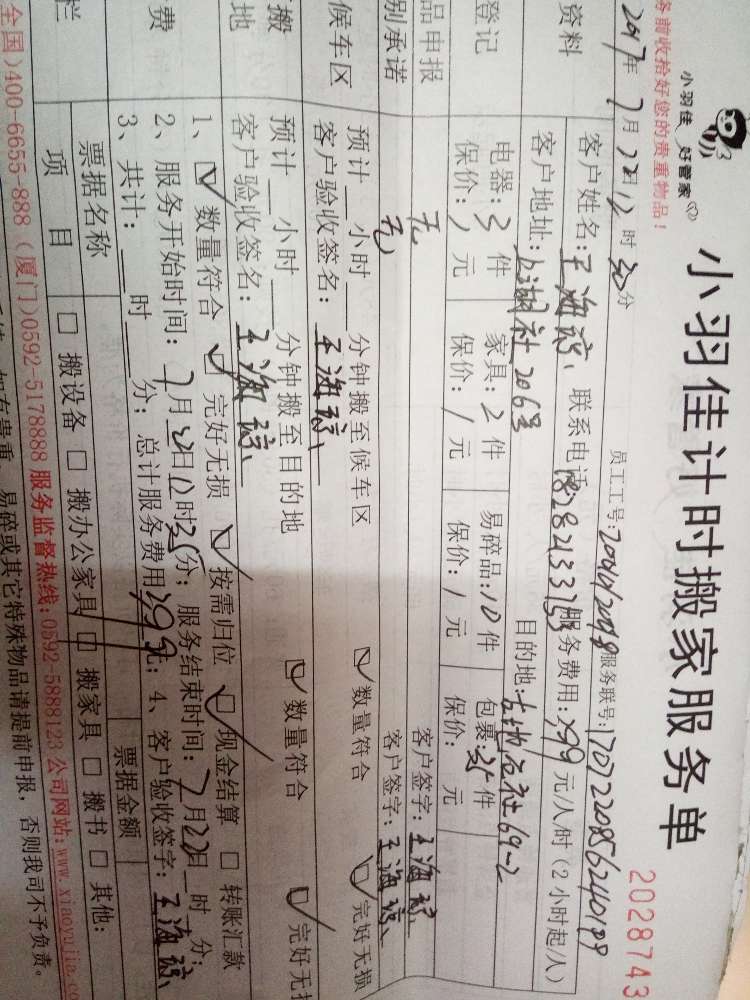 小羽佳 好管家
小羽佳计时搬家服务单
2028743
务前收拾好您的贵重物品!
员工工号: 服务联号:
2017年7月22日12时30分
资料
客户姓名:王海琼 联系电话: 服务费用:299元/人/时(2小时起/人)
客户地址: 目的地:
登记
电器:3件 家具:2件 易碎品:10件 包裹: 件
保价:/元 保价:/元 保价:/元 保价: 元
品申报
无 客户签字:王海琼
别承诺
无 客户签字:王海琼
候车区
预计 小时 分钟搬至候车区 数量符合 完好无损
客户验收签名:王海琼
搬
地
预计 小时 分钟搬至目的地 数量符合 完好无损
客户验收签名:王海琼
费
1、 数量符合 完好无损 按需归位 现金结算 转账汇款
2、服务开始时间:7月22日12时 分; 服务结束时间:7月22日 时 分;
3、共计: 时 分; 总计服务费用299元; 4、客户验收签字:王海琼
栏
票据名称 票据金额
项目 搬设备 搬办公家具 搬家具 搬书 其他:
全国)400-6655-888 (厦门)0592-5178888 服务监督热线:0592-5888123 公司网站:www.xiaoyujia.co
如有贵重、易碎或其它特殊物品请提前申报,否则我司不予负责。